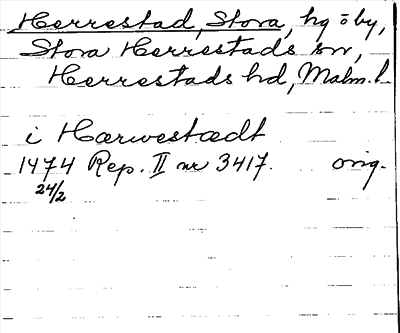 Herrestad, Stora, hg o by,
Stora Herrestads sn,
Herrestads hd, Malm. l.
i Hærwestædt
1474 Rep. II nr 3417. orig.
24/2